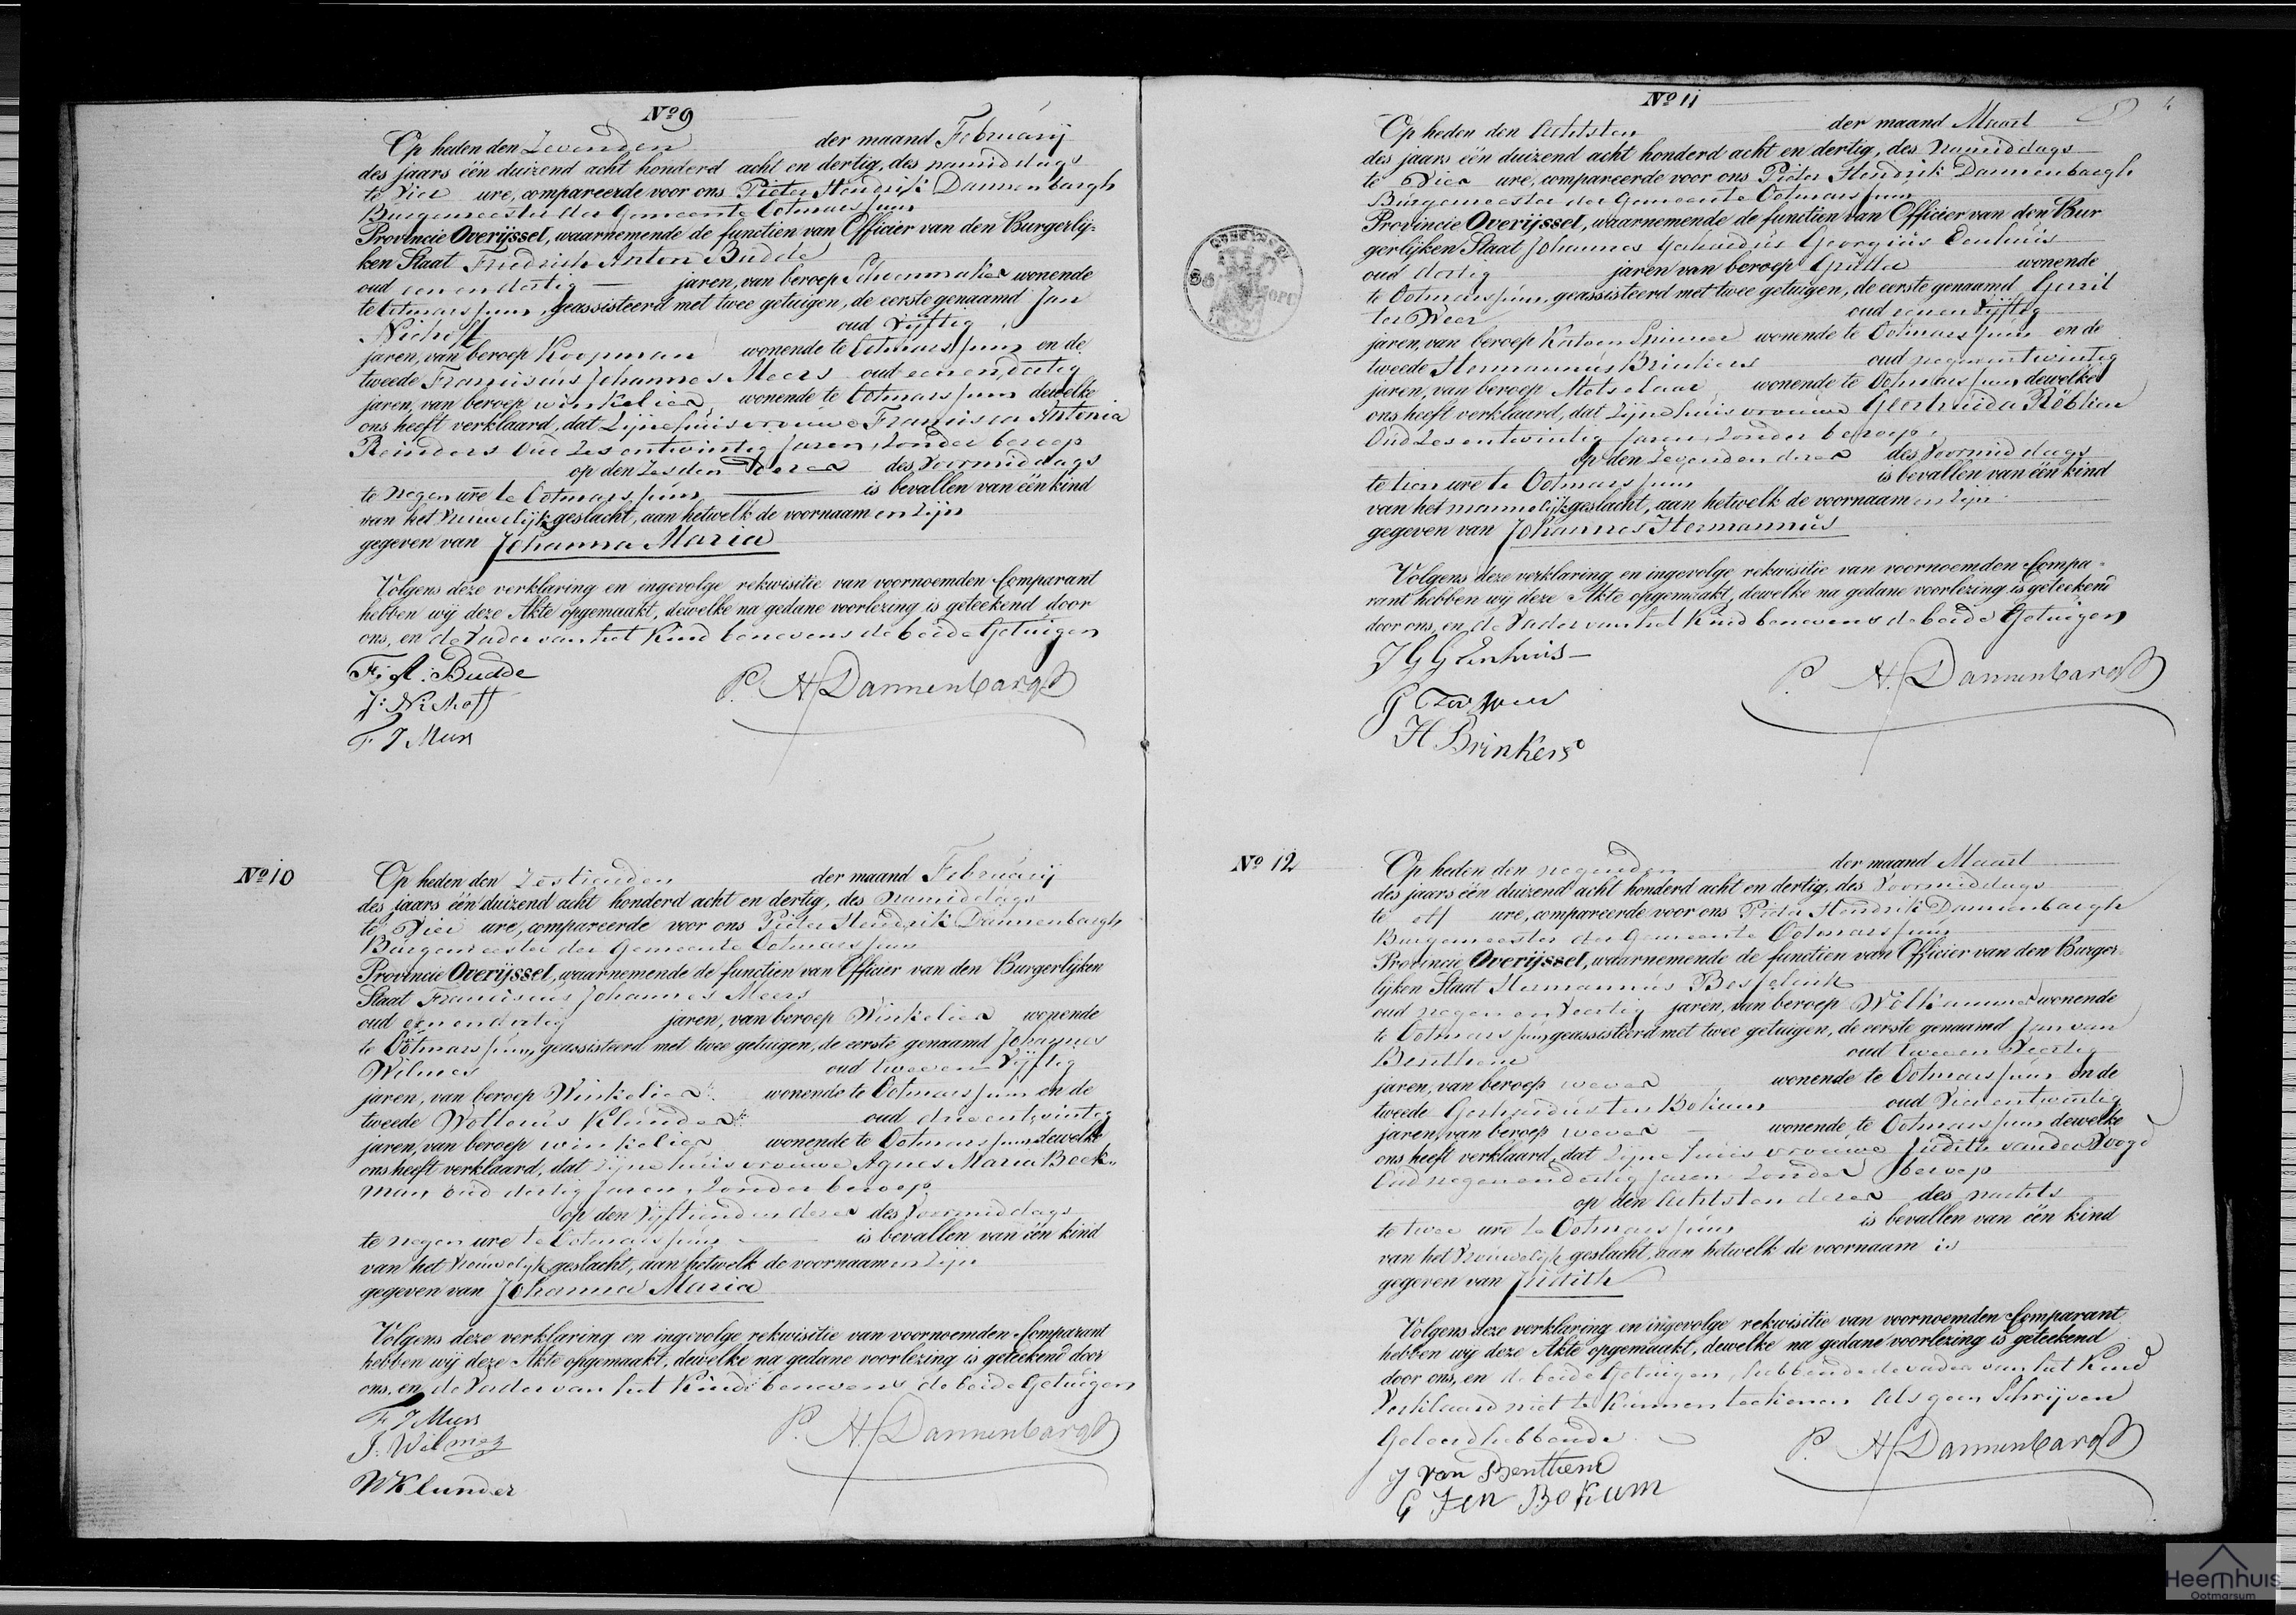 Nº 9
Op heden den Zevenden der maand Februarij
des jaars één duizend acht honderd acht en dertig, des namiddags
te Vier ure, compareerde voor ons Pieter Hendrik Dannenbargh
Burgemeester der Gemeente Ootmarssum
Provincie Overijssel, waarnemende de functien van Officier van den Burgerlij-
ken Staat Friedrich Anton Budde
oud een en dertig jaren, van beroep Schoenmaker wonende
te Ootmarssum, geassisteerd met twee getuigen, de eerste genaamd Jan
Niehoff oud Vijftig
jaren, van beroep Koopman wonende te Ootmarssum en de
tweede Franciscus Johannes Meers oud een en dertig
jaren, van beroep winkelier wonende te Ootmarssum dewelke
ons heeft verklaard, dat Zijne huisvrouwe Francisca Antonia
Reinders Oud Zes entwintig Jaren, Zonder beroep
op den Zesden dezer des Voormiddags
te negen ure te Ootmarssum is bevallen van één kind
van het Vrouwelijk geslacht, aan hetwelk de voornaamen zijn
gegeven van Johanna Maria
Volgens deze verklaring en ingevolge rekwisitie van voornoemden Comparant
hebben wij deze Akte opgemaakt, dewelke na gedane voorlezing is geteekend door
ons, en de Vader van het Kind benevens de beide Getuigen
F: A: Budde
J: Niehoff
P. H. Dannenbargh
F J Meers
Nº 10
Op heden den Zestienden der maand Februarij
des jaars één duizend acht honderd acht en dertig, des namiddags
te Vier ure, compareerde voor ons Pieter Hendrik Dannenbargh
Burgemeester der Gemeente Ootmarssum
Provincie Overijssel, waarnemende de functien van Officier van den Burgerlijken
Staat Franciscus Johannes Meers
oud een en dertig jaren, van beroep Winkelier wonende
te Ootmarssum, geassisteerd met twee getuigen, de eerste genaamd Johannes
Wilmes oud twee en Vijftig
jaren, van beroep Winkelier wonende te Ootmarssum en de
tweede Wolterus Klunder oud drie entwintig
jaren, van beroep winkelier wonende te Ootmarssum dewelke
ons heeft verklaard, dat Zijne huisvrouwe Agnes Maria Beck-
man oud dertig Jaren, Zonder beroep
op den Vijftienden dezer des Voormiddags
te negen ure te Ootmarssum is bevallen van één kind
van het Vrouwelijk geslacht, aan hetwelk de voornaamen zijn
gegeven van Johanna Maria
Volgens deze verklaring en ingevolge rekwisitie van voornoemden Comparant
hebben wij deze Akte opgemaakt, dewelke na gedane voorlezing is geteekend door
ons, en de Vader van het Kind benevens de beide Getuigen
F J Meers
J. Wilmes
P. H. Dannenbargh
W Klunder
Nº 11
Op heden den Achtsten der maand Maart
des jaars één duizend acht honderd acht en dertig, des Namiddags
te Vier ure, compareerde voor ons Pieter Hendrik Dannenbargh
Burgemeester der Gemeente Ootmarssum
Provincie Overijssel, waarnemende de functien van Officier van den Bur
gerlijken Staat Johannes Gerhardus Georgius Eenhuis
oud dertig jaren van beroep wonende
te Ootmarssum, geassisteerd met twee getuigen, de eerste genaamd Gerrit
ter Weer oud een en Vijftig
jaren, van beroep Katoen Spinner wonende te Ootmarssum en de
tweede Hermannus Brinkers oud negen entwintig
jaren, van beroep Metselaar wonende te Ootmarssum dewelke
ons heeft verklaard, dat Zijne huisvrouwe Geertruida
Oud Zes entwintig Jaren, Zonder beroep,
op den Zevenden dezer des Voormiddags
te tien ure te Ootmarssum is bevallen van één kind
van het mannelijk geslacht, aan hetwelk de voornaamen zijn
gegeven van Johannes Hermannus
Volgens deze verklaring en ingevolge rekwisitie van voornoemden Compa-
rant hebben wij deze Akte opgemaakt, dewelke na gedane voorlezing is geteekend
door ons, en de Vader van het Kind benevens de beide Getuigen
J G G Eenhuis
P. H. Dannenbargh
G Ter Weer
H Brinkers
Nº 12
Op heden den negenden der maand Maart
des jaars één duizend acht honderd acht en dertig, des Voormiddags
te elf ure, compareerde voor ons Pieter Hendrik Dannenbargh
Burgemeester der Gemeente Ootmarssum
Provincie Overijssel, waarnemende de functien van Officier van den Burger-
lijken Staat Hermannus
oud negen en Veertig jaren, van beroep Wolkammer wonende
te Ootmarssum geassisteerd met twee getuigen, de eerste genaamd Jan van
Benthem oud twee en Veertig
jaren, van beroep wever wonende te Ootmarssum en de
tweede Gerhardus ten Bokum oud Vier entwintig
jaren, van beroep wever wonende te Ootmarssum dewelke
ons heeft verklaard, dat Zijne huisvrouwe Judith vander Voogd
Oud negen en dertig Jaren Zonder beroep
op den Achtsten dezer des nachts
te twee ure te Ootmarssum is bevallen van één kind
van het Vrouwelijk geslacht, aan hetwelk de voornaam is
gegeven van Judith
Volgens deze verklaring en ingevolge rekwisitie van voornoemden Comparant
hebben wij deze Akte opgemaakt, dewelke na gedane voorlezing is geteekend
door ons, en de beide Getuigen, hebbende de vader van het Kind
Verklaard niet te Kunnen teekenen Als geen Schrijven
Geleerd hebbende
J van Benthem
P. H. Dannenbargh
G Ten Bokum
Heemhuis
Ootmarsum